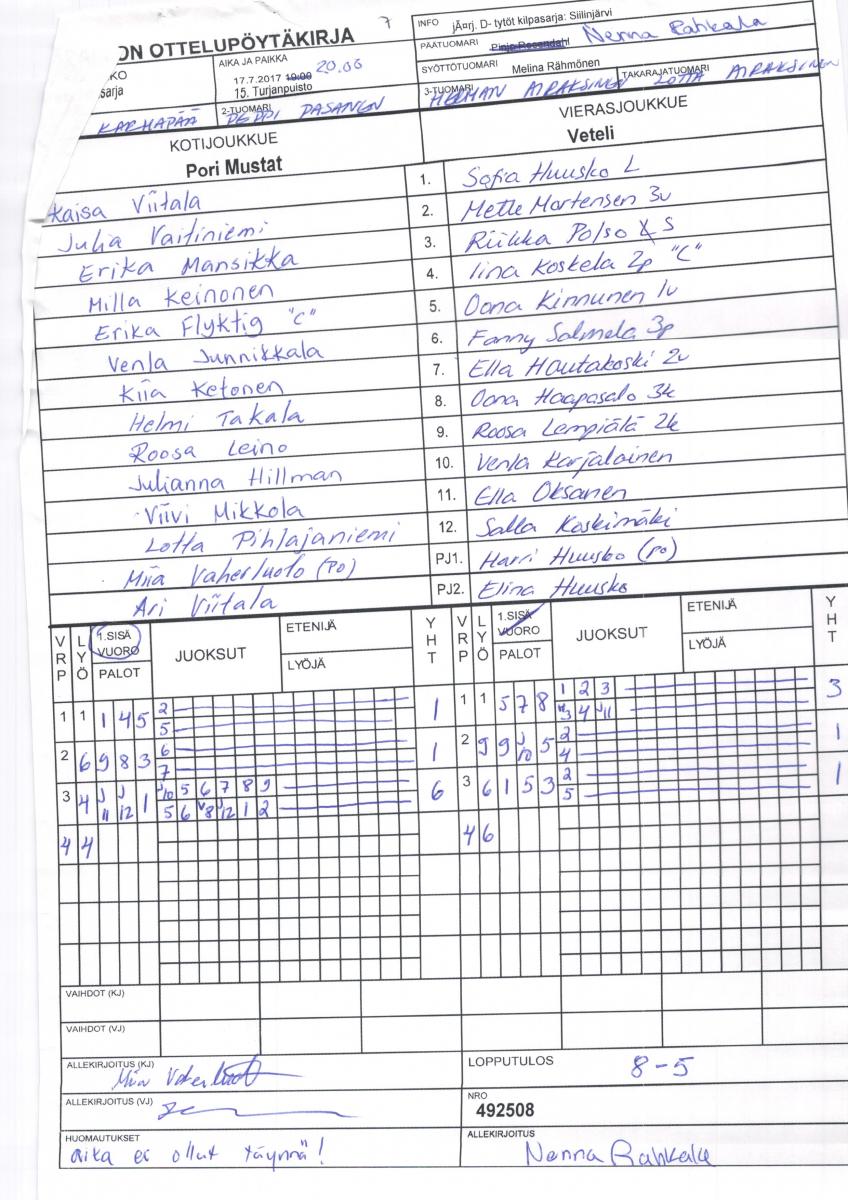 ON OTTELUPÖYTÄKIRJA
7
INFO jÃ¤rj. D- tytöt kilpasarja: Siilinjärvi
PÄÄTUOMARI Nenna Rahkala
KO
sarja
AIKA JA PAIKKA 20.00
17.7.2017 19:00
15. Turjanpuisto
SYÖTTÖTUOMARI Melina Rähmönen
3-TUOMARI AIRAKSINEN
TAKARAJATUOMARI LOTTA AIRAKSINEN
KARHAPÄÄ
2-TUOMARI PEPPI PASANEN
KOTIJOUKKUE
Pori Mustat
VIERASJOUKKUE
Veteli
Kaisa Viitala 1. Sofia Huusko L
Julia Vaitiniemi 2. Mette Mortensen 3v
Erika Mansikka 3. Riikka Polso S
Milla Keinonen 4. Iina Koskela 2p "C"
Erika Flyktig "C" 5. Oona Kinnunen 1v
Venla Junnikkala 6. Fanny Salmela 3p
Kiia Ketonen 7. Ella Hautakoski 2v
Helmi Takala 8. Oona Haapasalo 3k
Roosa Leino 9. Roosa Lempiälä 2k
Julianna Hillman 10. Venla Karjalainen
Viivi Mikkola 11. Ella Oksanen
Lotta Pihlajaniemi 12. Salla Koskimäki
Miia Vaherluoto (PO) PJ1. Harri Huusko (PO)
Ari Viitala PJ2. Elina Huusko
VRP LYÖ 1.SISÄ VUORO PALOT JUOKSUT ETENIJÄ LYÖJÄ YHT VRP LYÖ 1.SISÄ VUORO PALOT JUOKSUT ETENIJÄ LYÖJÄ YHT
1 1 1 4 5 2 1 1 1 5 7 8 1 2 3 3
5 3 4 J11
2 6 9 8 3 6 1 2 9 9 J10 5 2 1
7 4
3 4 J11 J12 1 J10 5 6 7 8 9 6 3 6 1 5 3 2 1
5 6 8 J12 1 2 5
4 4 4 6
VAIHDOT (KJ)
VAIHDOT (VJ)
ALLEKIRJOITUS (KJ) Miia Vaherluoto
LOPPUTULOS 8-5
ALLEKIRJOITUS (VJ)
NRO
492508
HUOMAUTUKSET
aika ei ollut täynnä!
ALLEKIRJOITUS
Nenna Rahkala